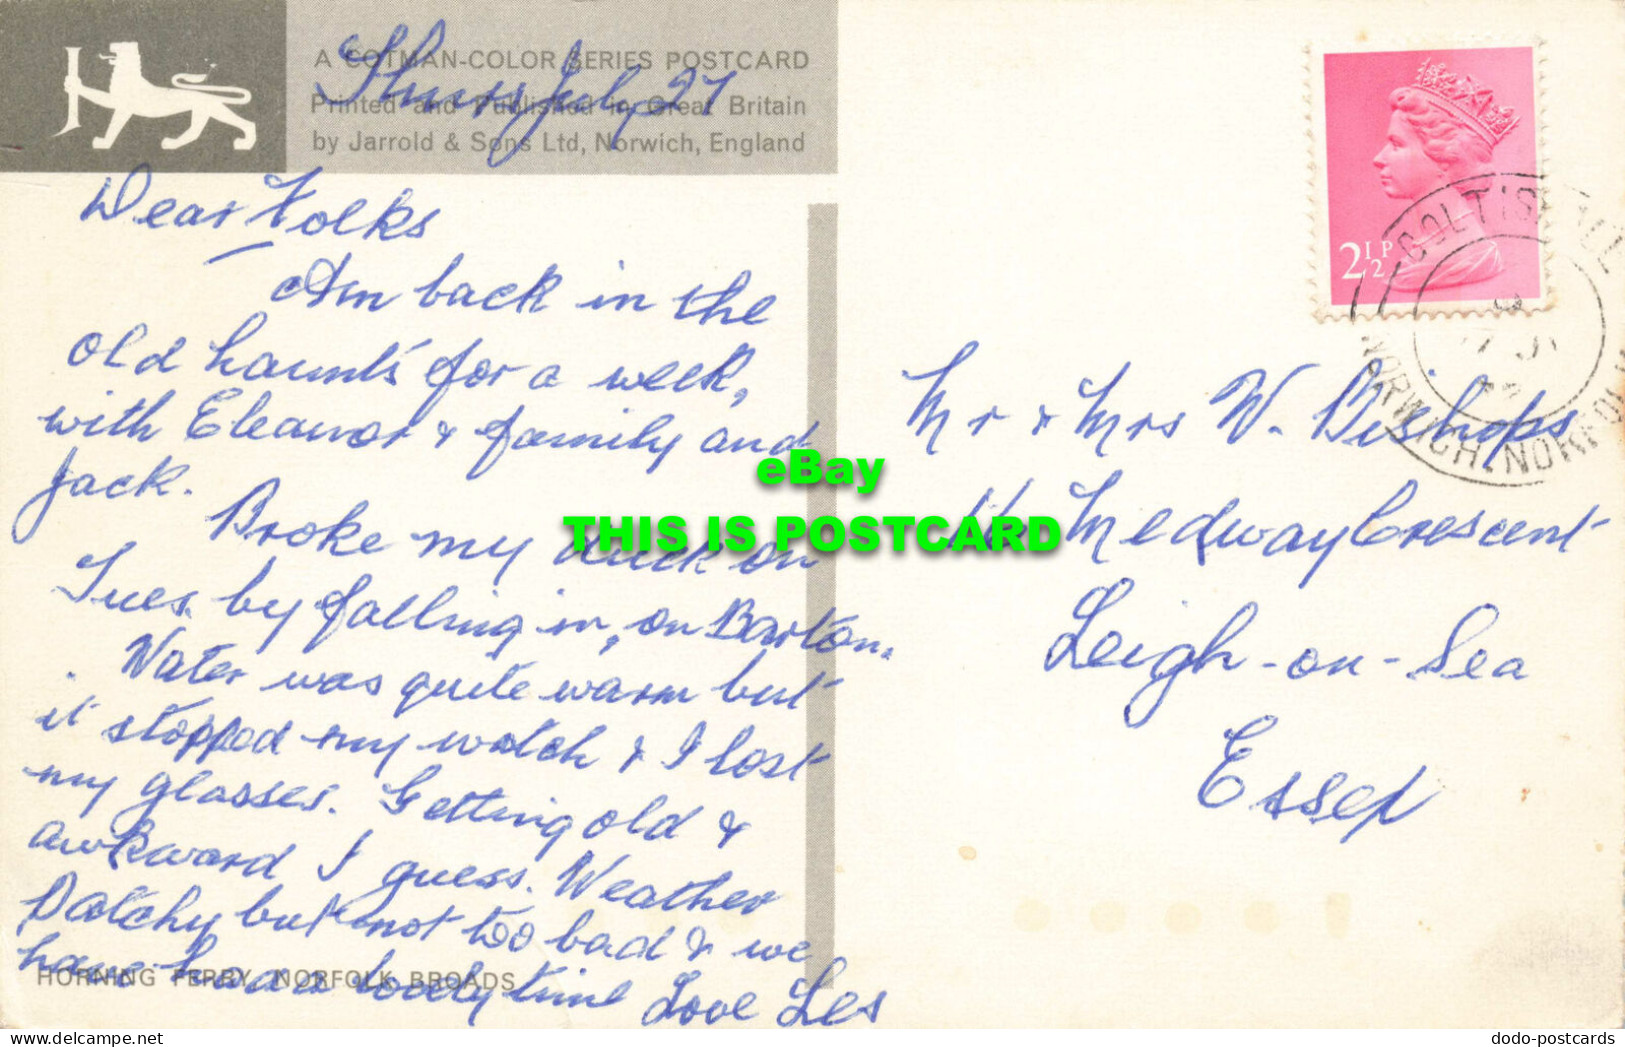 A COTMAN-COLOR SERIES POSTCARD
Printed and Published in Great Britain
by Jarrold & Sons Ltd, Norwich, England
Thurs July 27
Dear Folks
Am back in the
old haunts for a week,
with Eleanor & family and
Jack.
Broke my duck on
Tues. by falling in, on Barton.
Water was quite warm but
it stopped my watch & I lost
my glasses. Getting old &
awkward I guess. Weather
Patchy but not too bad & we
have had a lovely time Love Les
HORNING FERRY, NORFOLK BROADS
2½P
COLTISHALL
NORWICH, NORFOLK
Mr & Mrs W. Bishops
Medway Crescent
Leigh-on-Sea
Essex
eBay
THIS IS POSTCARD
dodo-postcards